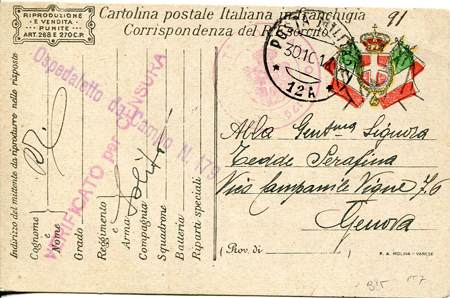 RIPRODUZIONE
E VENDITA
PUNITE
ART. 268 E 270 C.P.
Cartolina postale Italiana in franchigia
Corrispondenza del R. Esercito
91
POSTA MILITARE
30 10 1
* 12A *
Ospedaletto da Campo N. 179
VERIFICATO per CENSURA
Alla Gent.ma Signora
Tedde Serafina
Vico Campanile Vigne 7/6
Genova
(Prov. di
P. A. MOLINA - VARESE
Indirizzo del mittente da riprodurre nelle risposte
Cognome
e
Nome
Grado
Reggimento
e
Arma
Compagnia
Squadrone
Batteria
Riparti speciali
B15